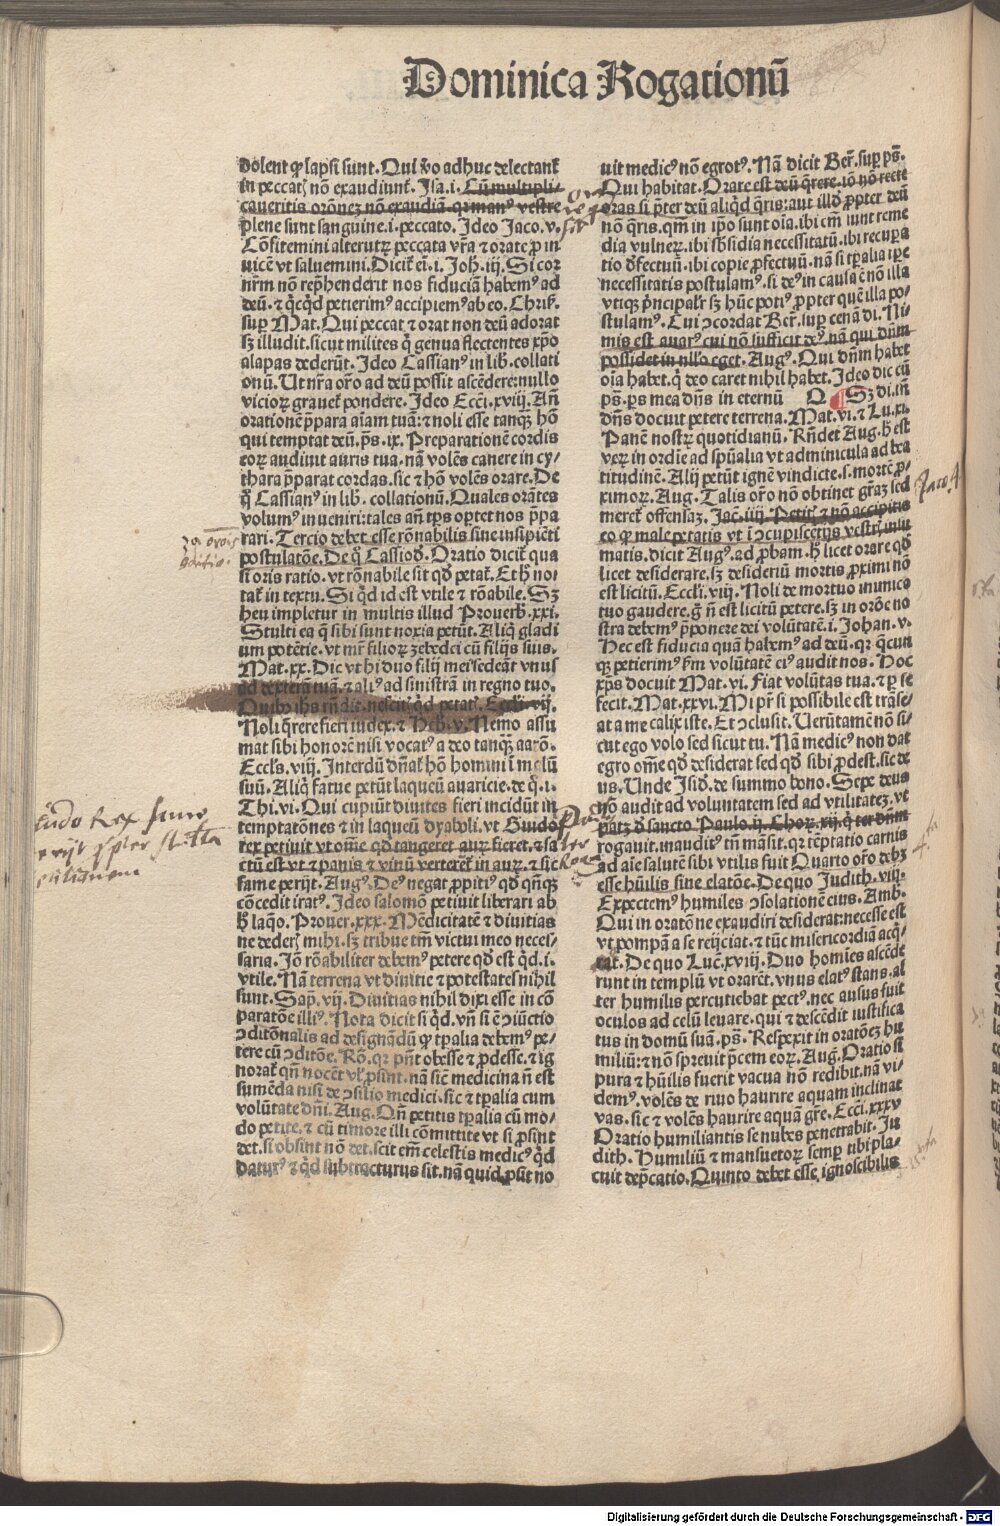 Dominica Rogationū
dolent ꝙ lapsi sunt. Qui v̄o adhuc delectant᷑
in peccatꝭ nō exaudiunt᷑. Isa. i. Cū multipli-
caueritis orōneꝫ nō exaudiā. qꝛ manꝰ vestre
plene sunt sanguine .i. peccato. Ideo Jaco. v.
Cōfitemini alterutꝝ peccata vr̄a ⁊ orate ꝓ in
uicē vt saluemini. Dicit᷑ eī. i. Joh. iij. Si cor
nr̄m nō rep̄henderit nos fiduciā habemꝰ ad
deū. ⁊ qͥcqͥd petierimꝰ accipiemꝰ ab eo. Chris.
suꝑ Mat. Qui peccat ⁊ orat non deū adorat
sꝫ illudit. sicut milites qͥ genua flectentes xp̄o
alapas dederūt. Ideo Cassianꝰ in lib. collati
onū. Ut nr̄a or̄o ad deū possit ascēdere: nullo
vicioꝝ grauet᷑ pondere. Ideo Ecc̄i. xviij. An̄
orationē p̄para aīam tuā: ⁊ noli esse tanqͣꝫ hō
qui temptat deū. ps. ix. Preparationē cordis
eoꝝ audiuit auris tua. nā volēs canere in cy/
thara p̄parat cordas. sic ⁊ hō volēs orare. De
qͦ Cassianꝰ in lib. collationū. Quales orātes
volumꝰ inueniri: tales an̄ tp̄s oꝑtet nos p̄pa
rari. Tercio debet esse rōnabilis sine insipiēti
postulatōe. De qͦ Cassiod. Oratio dicit᷑ qua
si oris ratio. vt rōnabile sit qd̄ petat᷑. Et h̄ no
tat᷑ in textu. Si qͥd id est vtile ⁊ rōabile. Sꝫ
heu impletur in multis illud Prouerb. xxi.
Stulti ea q̄ sibi sunt noxia petūt. Aliqͥ gladi
um potētie. vt mr̄ filioꝝ zebedei cū filijs suis.
Mat. xx. Dic vt hi duo filij mei sedeāt vnus
ad dexterā tuā. ⁊ aliꝰ ad sinistrā in regno tuo.
Quibꝰ ihs rn̄dit. nescitꝭ qͥd petatꝭ. Eccl̄i. vij.
Noli qͦrere fieri iudex. ⁊ Heb. v. Nemo assu
mat sibi honorē nisi vocatꝰ a deo tanqͣꝫ aarō.
Eccl̄s. viij. Interdū dn̄at᷑ hō homini ī malū
suū. Aliqͥ fatue petūt laqueū auaricie. de qͦ .i.
Thi. vi. Qui cupiūt diuites fieri incidūt in
temptatōnes ⁊ in laqueū dyaboli. vt Guido
rex petiuit vt om̄e qd̄ tangeret auꝝ fieret. ⁊ fa
ctū est vt ⁊ panis ⁊ vinū verteret᷑ in auꝝ. ⁊ sic
fame perijt. Augꝰ. Deꝰ negat ꝓpitiꝰ qd̄ qn̄qꝫ
cōcedit iratꝰ. Ideo salomō petiuit liberari ab
h̄ laqͦo. Prouer. xxx. Mēdicitatē ⁊ diuitias
ne dederꝭ mihi. sꝫ tribue tm̄ victui meo neces/
saria. Iō rōabiliter debemꝰ petere qd̄ est qͥd .i.
vtile. Nā terrena vt diuitie ⁊ potestates nihil
sunt. Sap. vij. Diuitias nihil dixi esse in cō
paratōe illiꝰ. Nota dicit si qͥd. vn̄ si ē ꝯiūctio
ꝯditōnalis ad designādū qꝫ tꝑalia debemꝰ pe/
tere cū ꝯditōe. Rō. qꝛ pn̄t obesse ⁊ ꝓdesse. ⁊ ig
norat᷑ qn̄ nocēt vl̓ ꝓsint. nā sic̄ medicina n̄ est
sumēda nisi de ꝯsilio medici. sic ⁊ tꝑalia cum
volūtate dn̄i. Aug. Qn̄ petitis tꝑalia cū mo/
do petite. ⁊ cū timore illi cōmittite vt si ꝓsint
det. si obsint nō det. scit em̄ celestis medicꝰ qͥd
daturꝰ ⁊ qͥd subtracturus sit. nā quid ꝓsit no
uit medicꝰ nō egrotꝰ. Nā dicit Ber̄. suꝑ ps̄.
Qui habitat. Orare est deū qͦrere. iō nō recte
oras si p̄ter deū aliqͥd qͦris: aut illd̄ ꝓpter deū
nō qͦris. qm̄ in ip̄o sunt oīa. ibi em̄ sunt reme
dia vulneꝝ. ibi sb̄sidia necessitatū. ibi recuꝑa
tio d̓fectuū. ibi copie ꝓfectuū. nā si tꝑalia ꝑ te
necessitatis postulamꝰ. si deꝰ in causa ē nō illa
vtiqꝫ pͥncipalit᷑ sꝫ hūc potiꝰ ꝓpter quē illa po/
stulamꝰ. Cui ꝯcordat Ber̄. suꝑ cenā di. Ni-
mis est auarꝰ cui nō sufficit deꝰ. nā qui dn̄m
possidet in nllo eget. Augꝰ. Qui dn̄m habet
oīa habet. qͥ deo caret nihil habet. Ideo dic cū
ps. ps mea dn̄s in eternū Q ¶ Sꝫ di. in̄
dn̄s docuit petere terrena. Mat. vi. ⁊ Lu. xi.
Panē nostꝝ quotidianū. Rn̄det Aug. h̄ est
veꝝ in ordīe ad spūalia vt adminicula ad bea
titudinē. Alij petūt ignē vindicte .s. mortē ꝓ/
ximoꝝ. Aug. Talis or̄o nō obtinet gr̄aꝫ sed
meret᷑ offensaꝫ. Jac̄. iiij. Petitꝭ ⁊ nō accipitis
eo ꝙ male petatis vt ī ꝯcupiscētijs vestrꝭ insu
matis. dicit Augꝰ. ad ꝓbam. h̄ licet orare qd̄
licet desiderare. sꝫ desideriū mortis ꝓximi nō
est licitū. Eccl̄i. viij. Noli de mortuo inimico
tuo gaudere. gͦ n̄ est licitū petere. sꝫ in orōe no
stra debemꝰ p̄ponere dei volūtatē. i. Johan. v.
Hec est fiducia quā habemꝰ ad deū. qꝛ qͥcun
qꝫ petierimꝰ ẜm volūtatē eiꝰ audit nos. Hoc
xp̄s docuit Mat. vi. Fiat volūtas tua. ⁊ ꝑ se
fecit. Mat. xxvi. Mi pr̄ si possibile est trāse/
at a me calix iste. Et ꝯclusit. Uerūtamē nō si/
cut ego volo sed sicut tu. Nā medicꝰ non dat
egro om̄e qd̄ desiderat sed qd̄ sibi ꝓdest. sic de
us. Unde Isid̄. de summo bono. Sepe deus
nō audit ad voluntatem sed ad vtilitateꝫ. vt
patꝫ d̓ sancto Paulo. ij. Choꝝ. xij. qͥ ter dn̄m
rogauit. inauditꝰ tn̄ māsit. qꝛ tēptatio carnis
ad aīe salutē sibi vtilis fuit Quarto or̄o debꝫ
esse hūilis sine elatōe. De quo Judith. viij.
Expectemꝰ humiles ꝯsolationē eius. Amb.
Qui in oratōne exaudiri desiderat: necesse est
vt pompā a se reijciat. ⁊ tūc misericordiā acqͥ/
rat. De quo Luc̄. xviij. Duo homīes ascēde
runt in templū vt orarēt. vnus elatꝰ stans. al
ter humilis percutiebat pectꝰ. nec ausus fuit
oculos ad celū leuare. qui ⁊ descēdit iustifica
tus in domū suā. ps̄. Respexit in oratōeꝫ hu
miliū: ⁊ nō spreuit p̄cem eoꝝ. Aug. Oratio si
pura ⁊ hūilis fuerit vacua nō redibit. nā vi/
demꝰ. volēs de riuo haurire aquam inclinat
vas. sic ⁊ volēs haurire aquā gr̄e. Ecc̄i. xxxv
Oratio humiliantis se nubes penetrabit. Ju
dith. Humiliū ⁊ mansuetoꝝ semꝑ tibi pla-
cuit dep̄catio. Quinto debet esse ignoscibilis
Jaco. 4.
Digitalisierung gefördert durch die Deutsche Forschungsgemeinschaft - DFG